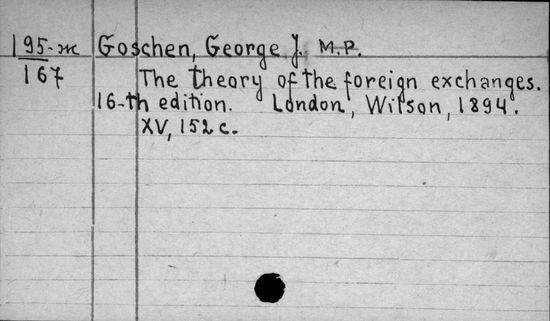 195-м Goschen, George J. M.P.
167 The theory of the foreign exchanges.
16-th edition. London, Wilson, 1894.
XV, 152 c.